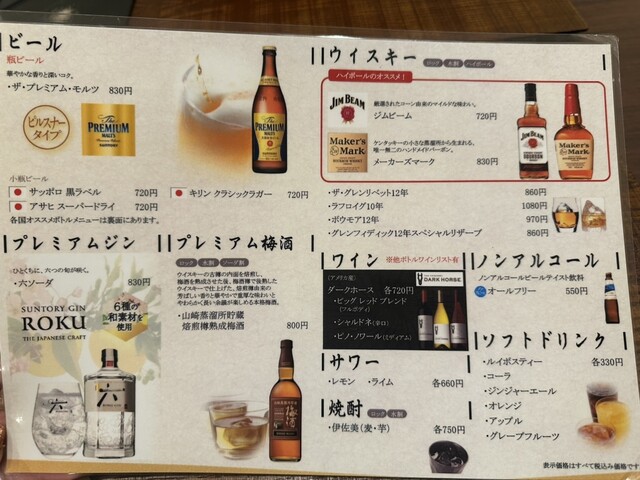 ビール
瓶ビール
華やかな香りと深いコク。
・ザ・プレミアム・モルツ 830円
ピルスナー
タイプ
The
PREMIUM
MALT'S
SUNTORY
小瓶ビール
サッポロ 黒ラベル 720円
アサヒ スーパードライ 720円
キリン クラシックラガー 720円
各国オススメボトルメニューは裏面にあります。
プレミアムジン
○ひとくちに、六つの旬が咲く。
・六ソーダ 830円
SUNTORY GIN
ROKU
THE JAPANESE CRAFT
6種の
和素材を
使用
六
六
プレミアム梅酒
ロック 水割 ソーダ割
ウイスキーの古樽の内面を焙煎し、
梅酒を熟成させた後、梅酒樽で後熟した
ウイスキーで仕上げた。焙煎樽由来の
芳ばしい香りと華やかで重厚な味わいと
やわらかく長い余韻が楽しめる本格梅酒。
・山崎蒸溜所貯蔵
焙煎樽熟成梅酒 800円
梅酒
ウイスキー
ロック 水割 ハイボール
ハイボールのオススメ！
JIM BEAM
厳選されたコーン由来のマイルドな味わい。
ジムビーム 720円
Maker's
Mark
ケンタッキーの小さな蒸溜所から生まれる、
唯一無二のハンドメイドバーボン。
メーカーズマーク 830円
JIM BEAM
BOURBON
Maker's
Mark
・ザ・グレンリベット12年 860円
・ラフロイグ10年 1080円
・ボウモア12年 970円
・グレンフィディック12年スペシャルリザーブ 860円
ワイン
※他ボトルワインリスト有
(アメリカ産)
ダークホース 各720円
DARK HORSE
・ビッグ レッド ブレンド
(フルボディ)
・シャルドネ(辛口)
・ピノ・ノワール(ミディアム)
サワー
・レモン ・ライム 各660円
焼酎
ロック 水割
・伊佐美(麦・芋) 各750円
ノンアルコール
ノンアルコールビールテイスト飲料
オールフリー 550円
ソフトドリンク
・ルイボスティー 各330円
・コーラ
・ジンジャーエール
・オレンジ
・アップル
・グレープフルーツ
表示価格はすべて税込み価格です